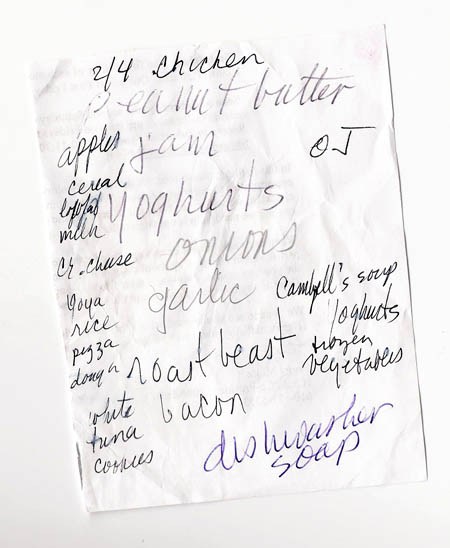 2/4 chicken
peanut butter
apples
jam
OJ
cereal
yoghurts
milk
onions
cr. cheese
garlic
Goya
rice
Cambell's soup
yoghurts
frozen
vegetables
pizza
dough
roast beast
bacon
white
tuna
cookies
dishwasher
soap